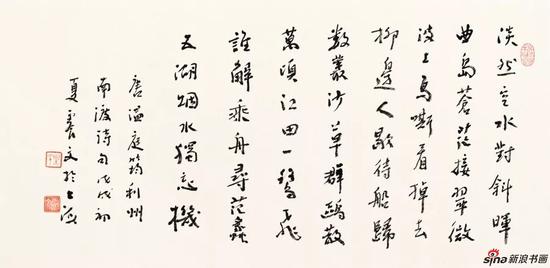 淡然空水對斜暉
曲島蒼茫接翠微
波上馬嘶看棹去
柳邊人歇待船歸
數叢沙草群鷗散
萬頃江田一鷺飛
誰解乘舟尋范蠡
五湖烟水獨忘機
唐溫庭筠利州
南渡詩句戊戌初
夏文於上海
sina新浪书画